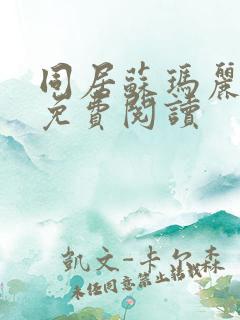 同居蘇瑪麗
免費閱讀
凱文-卡尔森
未经同意禁止转载